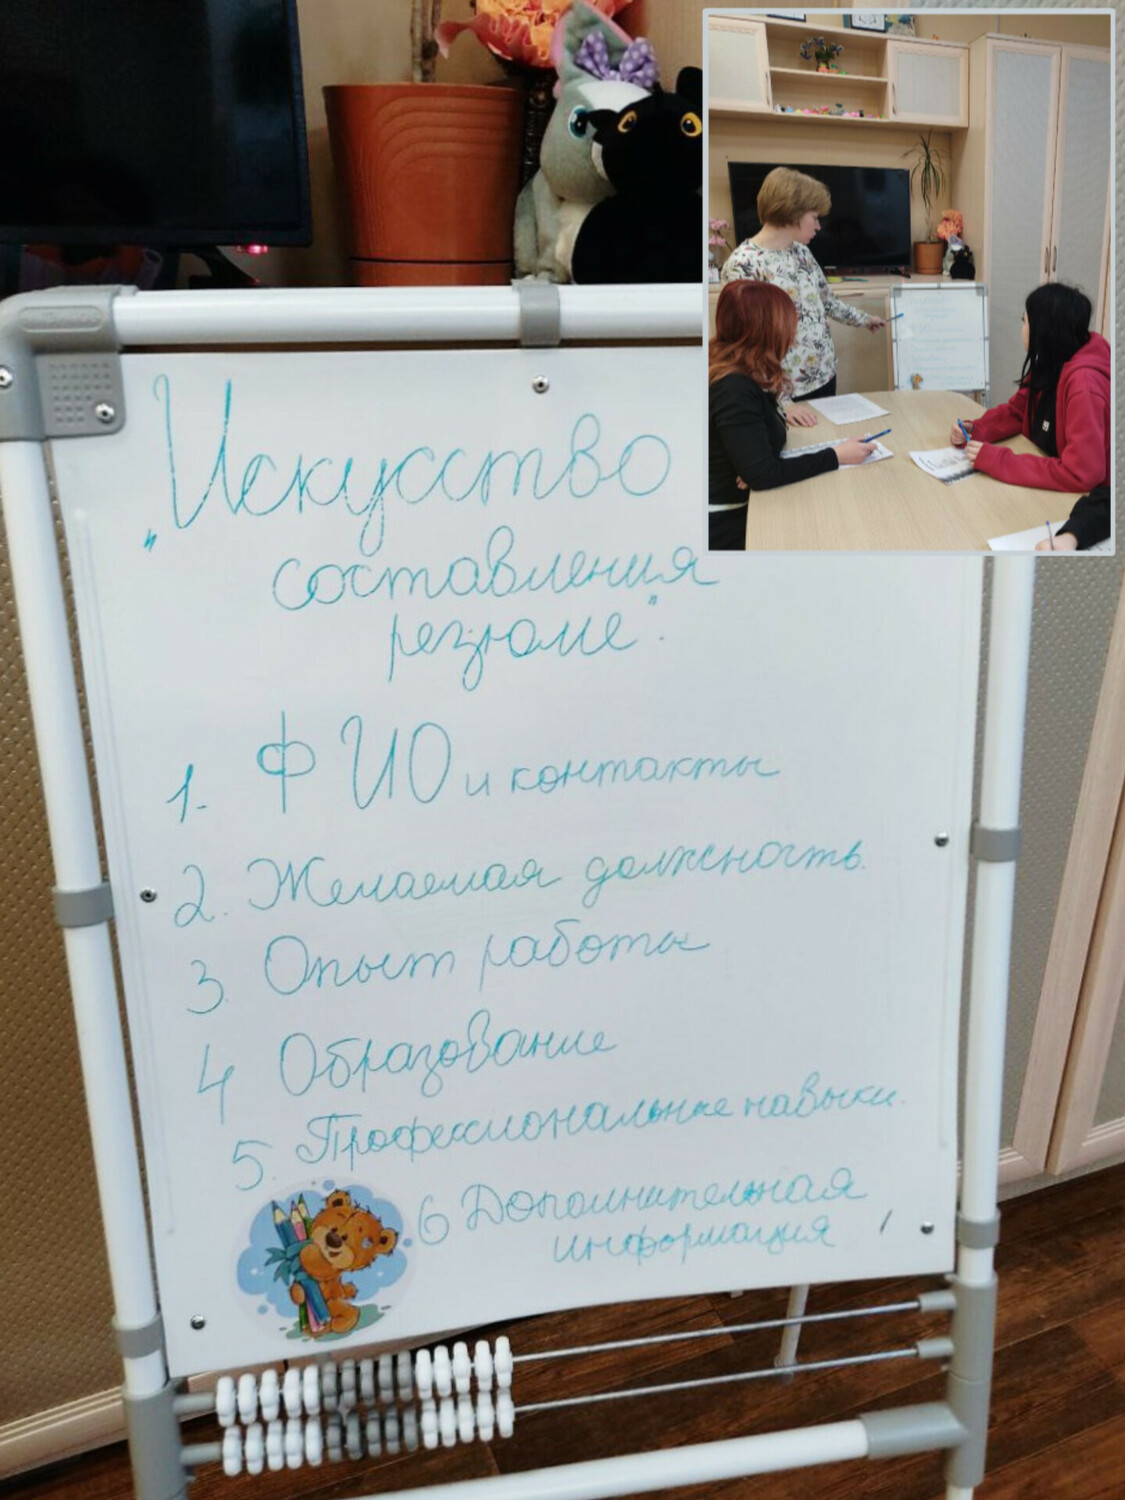 "Искусство
составления
резюме".
1. ФИО и контакты
2. Желаемая должность.
3. Опыт работы
4 Образование
5. Профессиональные навыки.
6 Дополнительная
информация